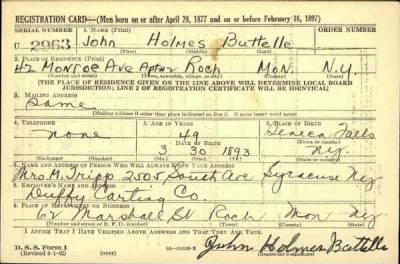 REGISTRATION CARD—(Men born on or after April 28, 1877 and on or before February 16, 1897)
SERIAL NUMBER 1. NAME (Print) ORDER NUMBER
U 2963 John Holmes Buttelle
(First) (Middle) (Last)
2. PLACE OF RESIDENCE (Print)
42 Monroe Ave Roch Mon. N.Y
(Number and street) (Town, township, village, or city) (County) (State)
[THE PLACE OF RESIDENCE GIVEN ON THE LINE ABOVE WILL DETERMINE LOCAL BOARD
JURISDICTION; LINE 2 OF REGISTRATION CERTIFICATE WILL BE IDENTICAL]
3. MAILING ADDRESS
Same
[Mailing address if other than place indicated on line 2. If same insert word same]
4. TELEPHONE 5. AGE IN YEARS 6. PLACE OF BIRTH
none 49 Seneca Falls
DATE OF BIRTH (Town or county)
3 30 1893 N.Y.
(Exchange) (Number) (Mo.) (Day) (Yr.) (State or country)
7. NAME AND ADDRESS OF PERSON WHO WILL ALWAYS KNOW YOUR ADDRESS
Mrs. M. Tripp 2505 South Ave Syracuse N.Y
8. EMPLOYER'S NAME AND ADDRESS
Duffy Carting Co.
9. PLACE OF EMPLOYMENT OR BUSINESS
62 Marshall St Roch Mon N.Y
(Number and street or R. F. D. number) (Town) (County) (State)
I AFFIRM THAT I HAVE VERIFIED ABOVE ANSWERS AND THAT THEY ARE TRUE.
D. S. S. Form 1
(Revised 4-1-42) (over) John Holmes Buttelle
(Registrant's signature)